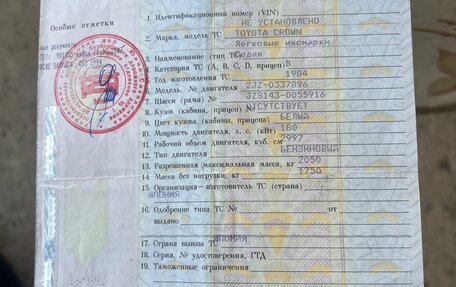 Особые отметки
1. Идентификационный номер (VIN)
НЕ УСТАНОВЛЕНО
2. Марка, модель ТС TOYOTA CROWN
Легковые иномарки
3. Наименование (тип ТС) Седан
4. Категория ТС (A, B, C, D, прицеп) B
5. Год изготовления ТС 1984
6. Модель, № двигателя 2JZ-0337896
7. Шасси (рама) № JZS143-0055916
8. Кузов (кабина, прицеп) № ОТСУТСТВУЕТ
9. Цвет кузова (кабины, прицепа) БЕЛЫЙ
10. Мощность двигателя, л. с. (кВт) 180
11. Рабочий объем двигателя, куб. см 2997
12. Тип двигателя БЕНЗИНОВЫЙ
13. Разрешенная максимальная масса, кг 2050
14. Масса без нагрузки, кг 1750
15. Организация — изготовитель ТС (страна)
ЯПОНИЯ
16. Одобрение типа ТС № от
выдано
17. Страна вывоза ТС ЯПОНИЯ
18. Серия, № удостоверения, ГТД
19. Таможенные ограничения